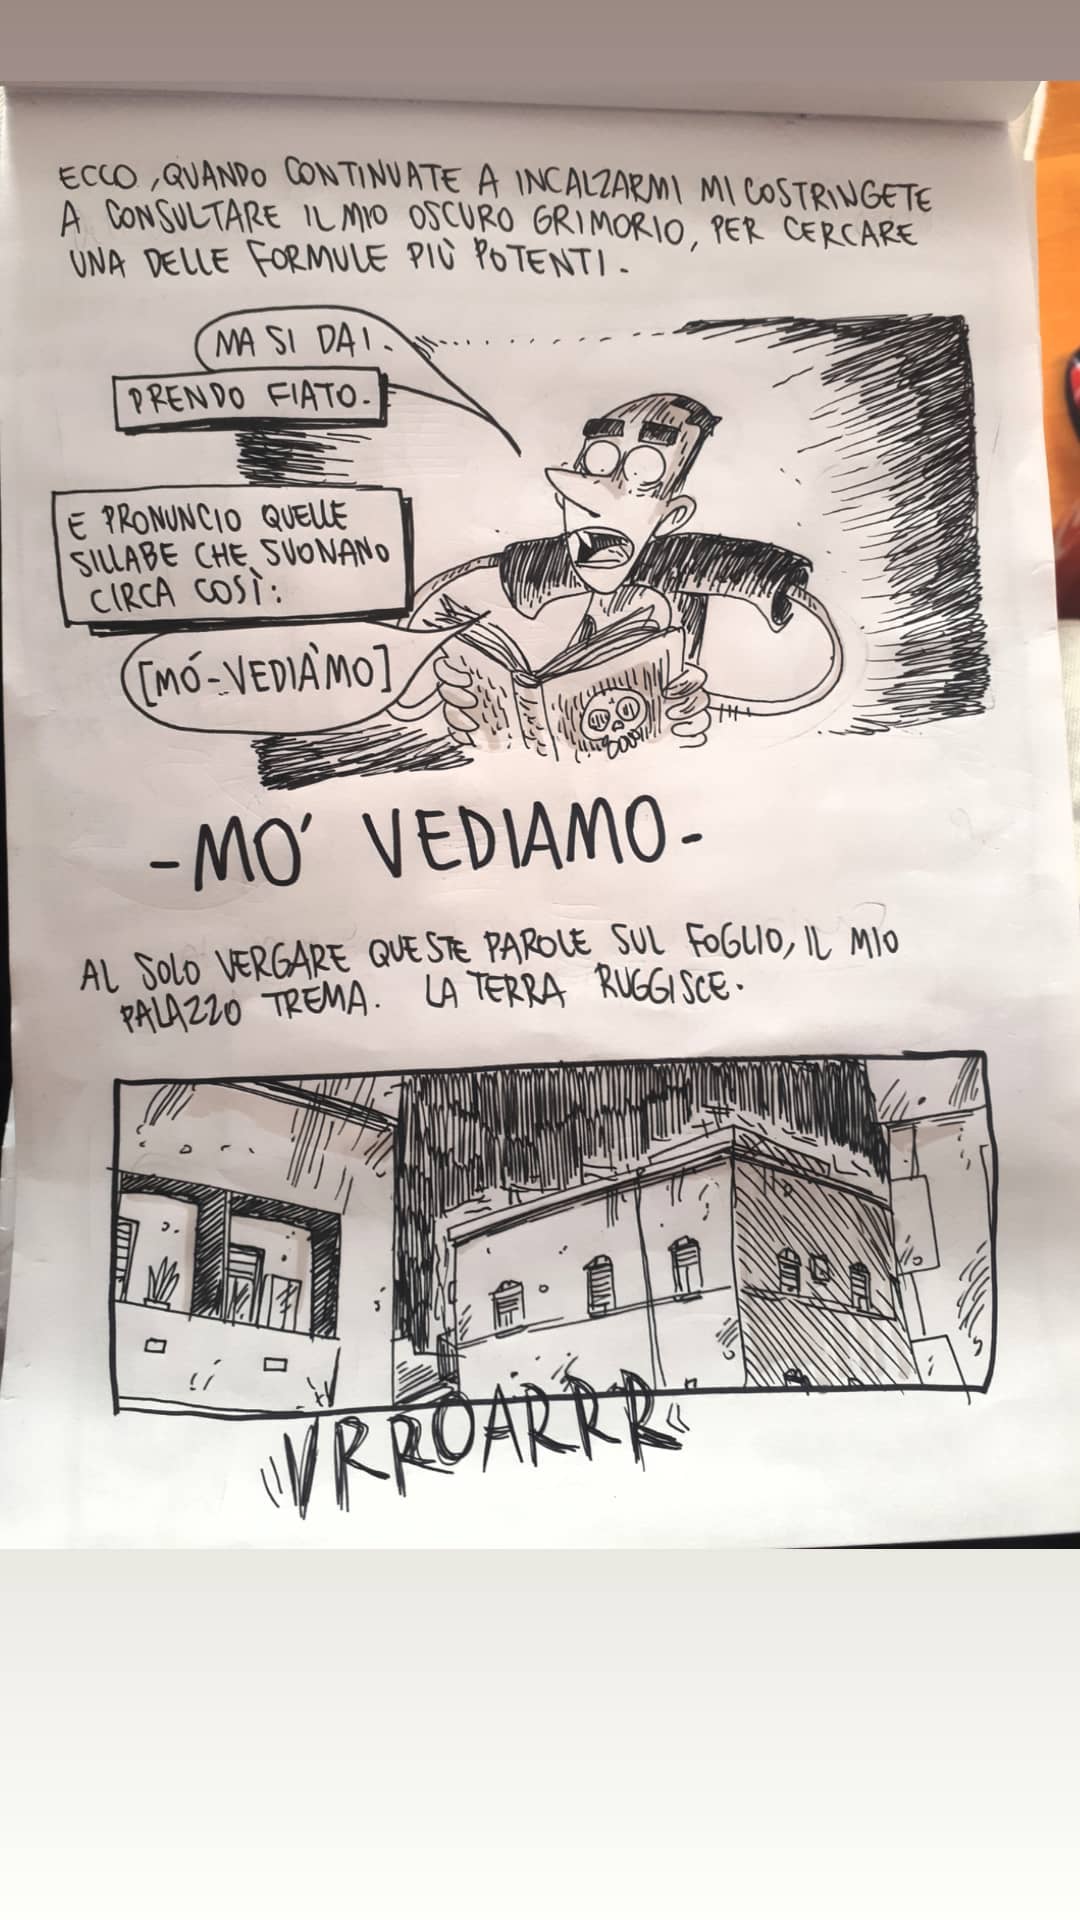 ECCO, QUANDO CONTINUATE A INCALZARMI MI COSTRINGETE
A CONSULTARE IL MIO OSCURO GRIMORIO, PER CERCARE
UNA DELLE FORMULE PIÙ POTENTI.
MA SI DAI.
PRENDO FIATO.
E PRONUNCIO QUELLE
SILLABE CHE SUONANO
CIRCA COSÌ:
[MÓ-VEDIÀMO]
-MO' VEDIAMO-
AL SOLO VERGARE QUESTE PAROLE SUL FOGLIO, IL MIO
PALAZZO TREMA. LA TERRA RUGGISCE.
VRROARRR